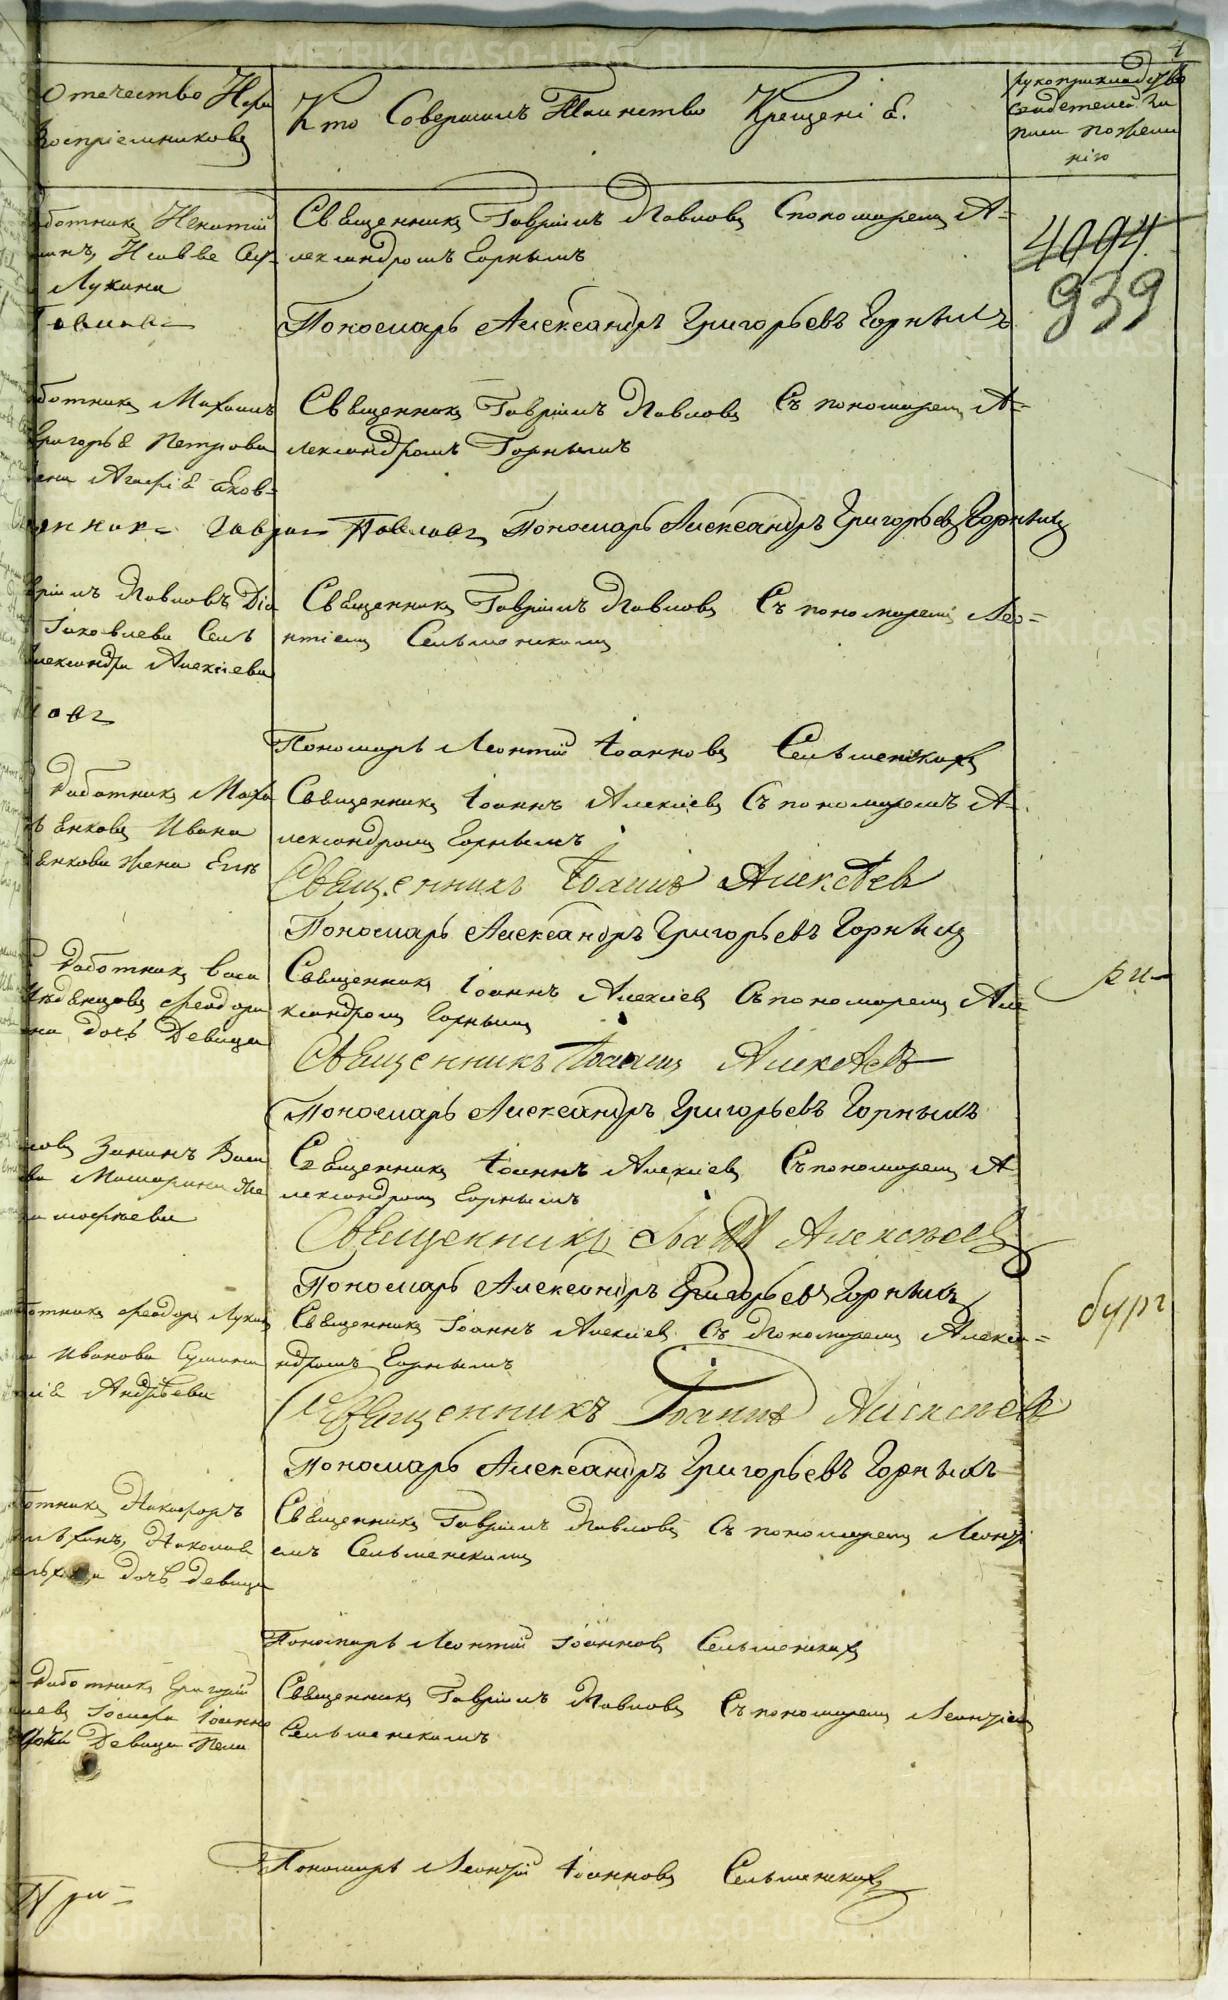 METRIKI.GASO-URAL.RU
Отечество
Воспріемниковъ
Кто Совершалъ Таинство Крещеніе.
рукоприкладство
свидетелей
писи по желанію
1
4094
939
ботникъ Никитій
Лукина
Павловъ
Священникъ Гавріилъ Павловъ Спономаремъ А=
лександромъ Горнымъ
Пономарь Александръ Григорьевъ Горныхъ
ботникъ Михаилъ
Григорье Петрова
Священникъ Гавріилъ Павловъ Съ пономаремъ А=
лександромъ Горнымъ
Павловъ Пономарь Александръ Григорьевъ Горныхъ
вріилъ Павловъ Діа
Іаковлева Селъ
Александра Алексіева
Священникъ Гавріилъ Павловъ Съ пономаремъ Лео=
нтіемъ Сельменскимъ
ловъ
Пономарь Леонтій Іоанновъ Сельменскихъ
Работникъ Миха
Ивана
енкова жена
Священникъ Іоаннъ Алексіевъ Съ пономаремъ А=
лександромъ Горнымъ
Священникъ Іоаннъ Алексѣевъ
Пономарь Александръ Григорьевъ Горныхъ
Работникъ Васи
Феодора
на дочь Девица
Священникъ Іоаннъ Алексіевъ Съ пономаремъ Але
ксандромъ Горнымъ
Священникъ Іоаннъ Алексѣевъ
ри=
Пономарь Александръ Григорьевъ Горныхъ
Зининъ Васи
ва Машарина же
Священникъ Іоаннъ Алексіевъ Съ пономаремъ А
лександромъ Горнымъ
Священникъ Іоаннъ Алексѣевъ
Пономарь Александръ Григорьевъ Горныхъ
бург
ботникъ Феодоръ Лукинъ
Иванова
Андреева
Священникъ Іоаннъ Алексіевъ Съ Пономаремъ Алекса=
ндромъ Горнымъ
Священникъ Іоаннъ Алексѣевъ
Пономарь Александръ Григорьевъ Горныхъ
ботникъ Никифоръ
Николая
дочь девица
Священникъ Гавріилъ Павловъ Съ пономаремъ Леонті
емъ Сельменскимъ
Пономарь Леонтій Іоанновъ Сельменскихъ
Работникъ Григорій
Іосифа Іоанно
Девица Пела
Священникъ Гавріилъ Павловъ Съ пономаремъ Леонтіемъ
Сельменскимъ
Пономарь Леонтій Іоанновъ Сельменскихъ
При=